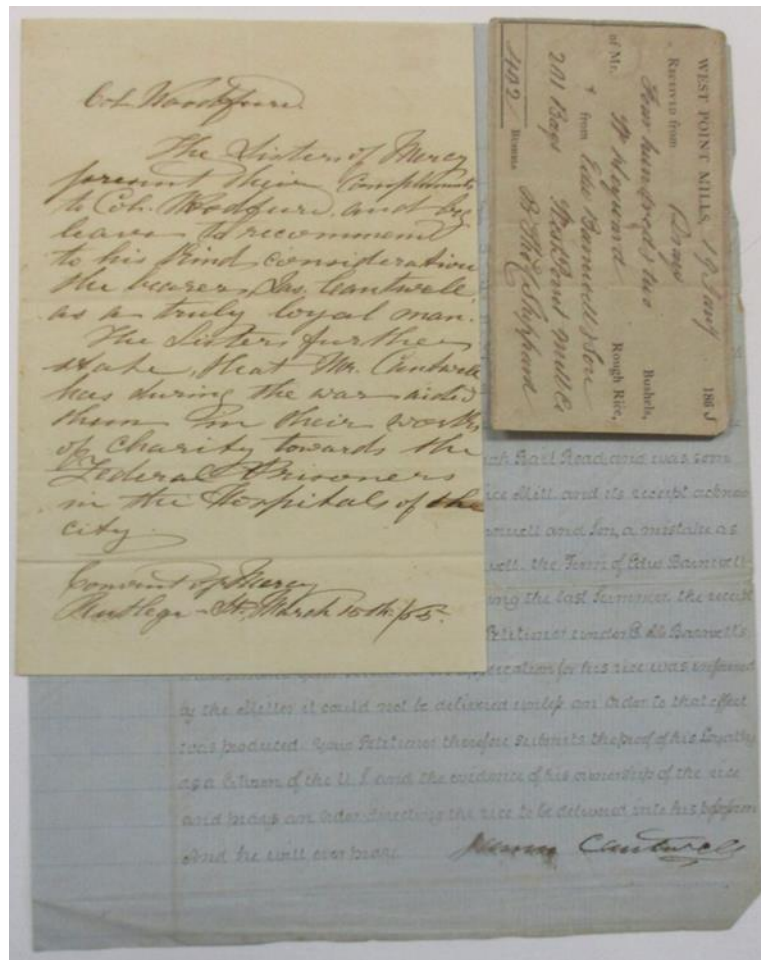 Col. Woodfurd.
The Sisters of Mercy
present their Compliments
to Col. Woodfurd. and beg
leave to recommend
to his kind consideration
the bearer, Jas. Cantwell,
as a truly loyal man.
The Sisters further
state, that Mr. Cantwell
has during the war aided
them in their works
of Charity towards the
Federal Prisoners
in the Hospitals of the
city.
Convent of Mercy
Rutlege - St. March 10th/65.
WEST POINT MILLS, 19 Jany 1865
Received from Drays
Four hundred & two Bushels,
of Mr. W Heyward Rough Rice,
& from Edw Barnwell & Son
201 Bags West Point Mill Co
402/ BUSHELS By Tho C Sheppard
Rail Road and was some
Rice Mill and its receipt acknow
and Son, a mistake as
the Firm of Edw Barnwell
the last Summer the receipt
Petitioner under E. W Barnwell's
application for his rice was informed
by the Miller it could not be delivered unless an Order to that effect
was produced. Your Petitioner therefore submits the proof of his Loyalty
as a Citizen of the U. S and the evidence of his ownership of the rice
and prays an Order directing the rice to be delivered into his
And he will ever pray. James Cantwell